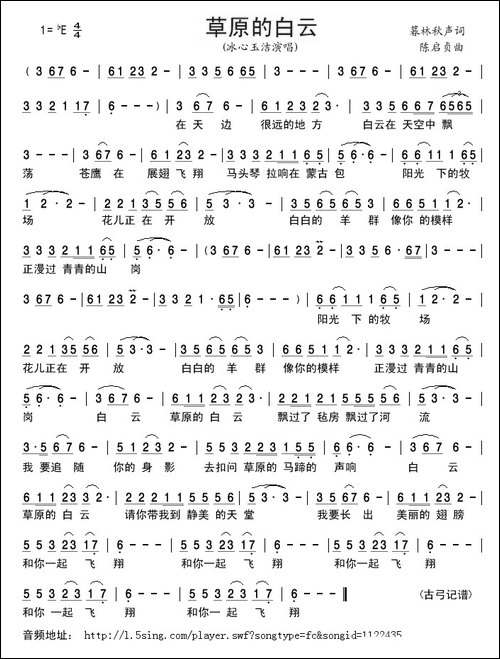 草原的白云
1= ♭E 4/4
(冰心玉洁演唱)
暮林秋声词
陈启贞曲
( 3 6 7 6 - | 6 1 2 3 - | 3 6 7 6 - | 6 1 2 3 2 - | 3 3 5 6 - |
3 3 3 2 1 1 7 | 6 - - - ) | 3 6 7 6 - | 6 1 2 3 2 3· | 3 5 6 6 7 7 6 5 6 5
在 天 边 很远的地 方 白云在 天空中 飘
3 - - - | 3 6 7 6 - | 6 1 2 3 2 - | 2 2 2 1 1 6 5 | 5 6· 6 - | 6 6 1 1 1 6 5
荡 苍鹰 在 展翅 飞 翔 马头琴 拉响在 蒙古 包 阳光 下的牧
1 2 · 2 - | 2 2 1 3 5 5 6 | 5 3 · 3 - | 3 3 5 6 5 6 5 3 | 6 6 5 1 1 2 ·
场 花儿正 在 开 放 白白的 羊 群 像你 的模样
3 3 3 2 1 1 6 5 | 5 6· 6 - | ( 3 6 7 6 - | 6 1 2 3 2 - | 3 3 5 6 - |
正漫过 青青的山 岗
3 6 7 6 - | 6 1 2 3 - | 3 · 1 2 3 2 - | 3 · 1 2 5 6 | 6 - - - ) | 6 6 1 1 1 6 5 | 1 2 · 2 -
阳光 下 的牧 场
2 2 1 3 5 5 6 | 5 3 · 3 - | 3 3 5 6 5 6 5 3 | 6 6 5 1 1 2 · | 3 3 3 2 1 1 6 5
花儿正在 开 放 白白的 羊 群 像你的模样 正漫过 青青的山
5 6 · 6 - | 3 6 7 6 - | 6 1 1 2 3 2 - | 2 2 1 6 5 3 5 | 6 1 1 3 2 -
岗 白 云 草原的 白云 飘过了 毡房 飘过了河 流
3 · 5 6 7 6 | 5 5 3 2 3 · | 5 5 3 2 2 3 1 5 5 | 5 6· 6 - | 3 6 7 6 -
我 要追 随 你的 身 影 去扣问 草原的 马蹄的 声响 白 云
6 1 1 2 3 3 2 · | 2 2 1 6 5 5 3 5 | 6 · 1 1 3 2 - | 3 · 5 6 7 6 | 5 5 3 2 3 3 -
草原的 白 云 请你带我到 静美 的天 堂 我要长 出 美丽的 翅 膀
5 5 3 2 3 1 7 | 6 - - - | 5 5 3 2 3 1 7 | 6 - - -
和你一起 飞 翔 和你一 起 飞 翔
5 5 3 2 3 1 7 | 6 - - - | 6 - - - ‖
和你一起 飞 翔
(古弓记谱)
音频地址: http://1.5sing.com/player.swf?songtype=fc&songid=1122435